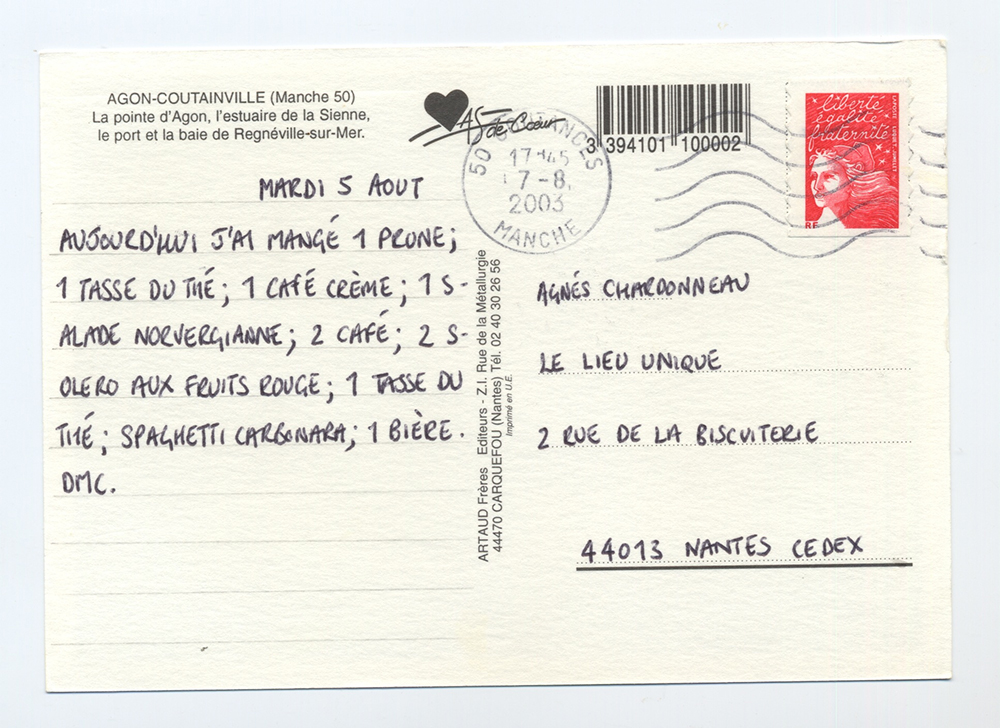 AGON-COUTAINVILLE (Manche 50)
La pointe d'Agon, l'estuaire de la Sienne,
le port et la baie de Regnéville-sur-Mer.
AS de Cœur
3 394101 100002
50 COUTANCES
17H45
7-8.
2003
MANCHE
liberté
égalité
fraternité
RF
MARDI 5 AOUT
AUJOURD'HUI J'AI MANGÉ 1 PRUNE;
1 TASSE DU THÉ; 1 CAFÉ CRÈME; 1 S-
ALADE NORVERGIANNE; 2 CAFÉ; 2 S-
OLERO AUX FRUITS ROUGE; 1 TASSE DU
THÉ; SPAGHETTI CARBONARA; 1 BIÈRE.
DMC.
ARTAUD Frères Editeurs - Z.I. Rue de la Métallurgie
44470 CARQUEFOU (Nantes) Tél. 02 40 30 26 56
Imprimé en U.E.
AGNÉS CHARDONNEAU
LE LIEU UNIQUE
2 RUE DE LA BISCUITERIE
44013 NANTES CEDEX